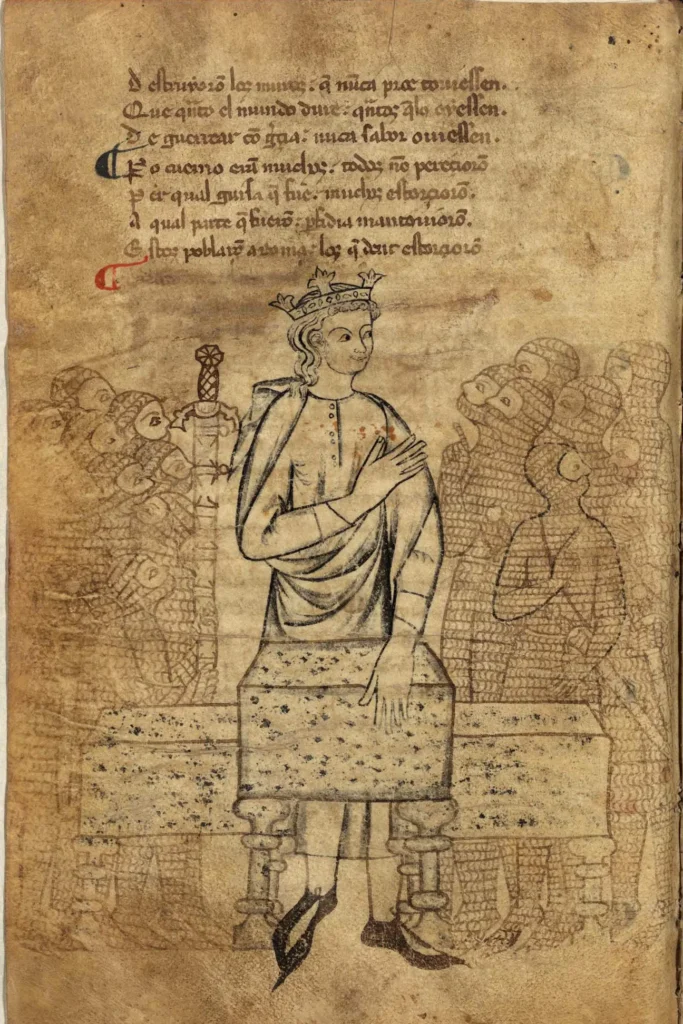 D estruyorõ los muros : q̃ nũca proe touiessen .
Que qñto el mundo dure : qñtos q̃lo oyessen .
D e guerrear cõ gr̃cia : nuca sabor ouiessen .
P o cuemo erã muchos . todos nõ perecioro
P er qual guisa q̃ fue . muchos estorciorõ .
A qual parte q̃ fuerõ : ꝑfidia mantouiorõ .
E stos poblarõ a roma : los q̃ dent estorciorõ